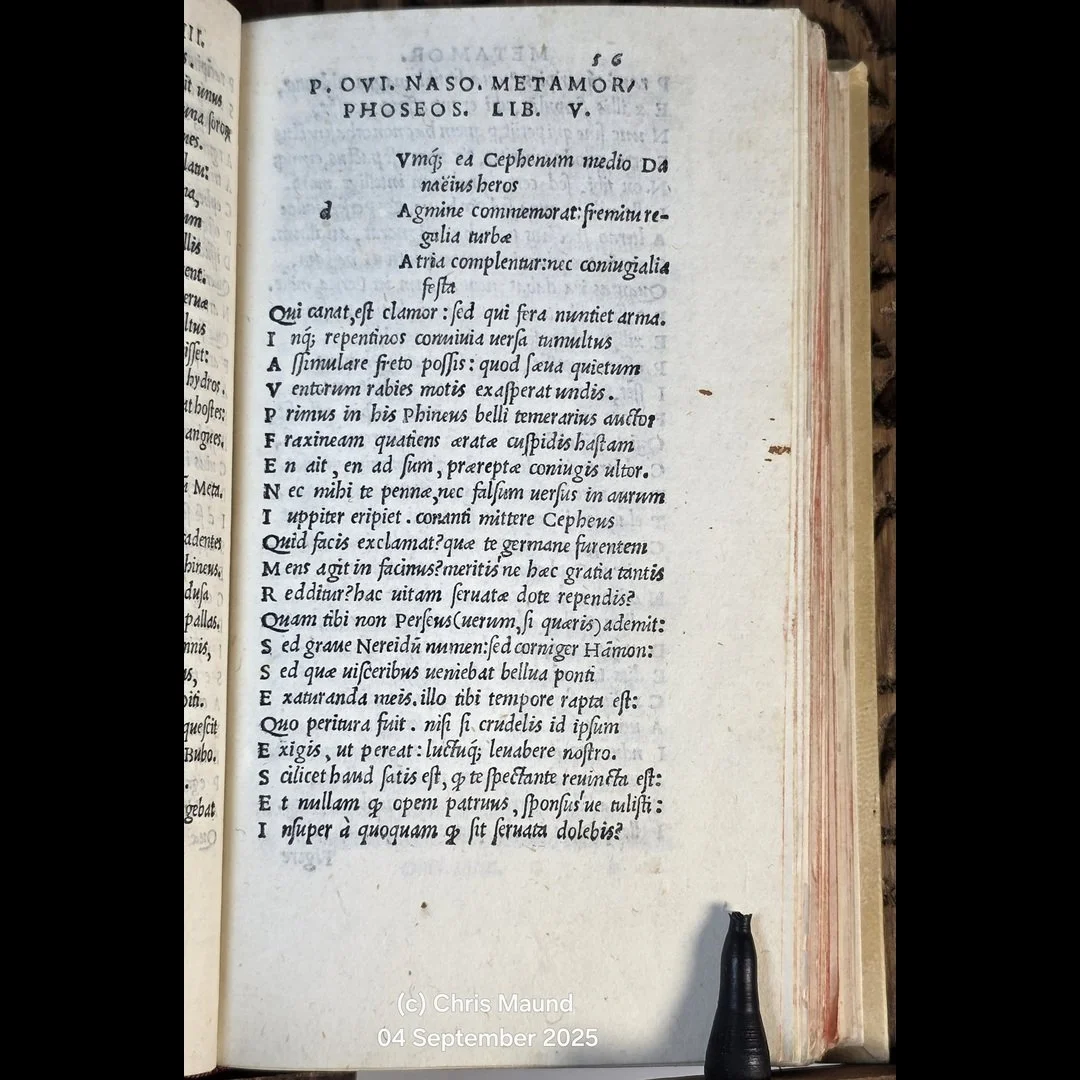 III.
56
P. OVI. NASO. METAMOR/
PHOSEOS. LIB. V.
d
Vmq; ea Cephenum medio Da
naëius heros
Agmine commemorat: fremitu re-
galia turbæ
Atria complentur: nec coniugialia
festa
Qui canat, est clamor: sed qui fera nuntiet arma.
I nq; repentinos conuiuia uersa tumultus
A ssimulare freto possis: quod sæua quietum
V entorum rabies motis exasperat undis.
P rimus in his Phineus belli temerarius auctor
F raxineam quatiens æratæ cuspidis hastam
E n ait, en ad sum, præreptæ coniugis ultor.
N ec mihi te pennæ, nec falsum uersus in aurum
I uppiter eripiet. conanti mittere Cepheus
Quid facis exclamat? quæ te germane furentem
M ens agit in facinus? meritis'ne hæc gratia tantis
R edditur? hac uitam seruatæ dote rependis?
Quam tibi non Perseus (uerum, si quæris) ademit:
S ed graue Nereidū numen: sed corniger Hāmon:
S ed quæ uisceribus ueniebat bellua ponti
E xaturanda meis. illo tibi tempore rapta est:
Quo peritura fuit. nisi si crudelis id ipsum
E xigis, ut pereat: luctuq; leuabere nostro.
S cilicet haud satis est, ꝙ te spectante reuincta est:
E t nullam ꝙ opem patruus, sponsus'ue tulisti:
I nsuper à quoquam ꝙ sit seruata dolebis?
(c) Chris Maund
04 September 2025